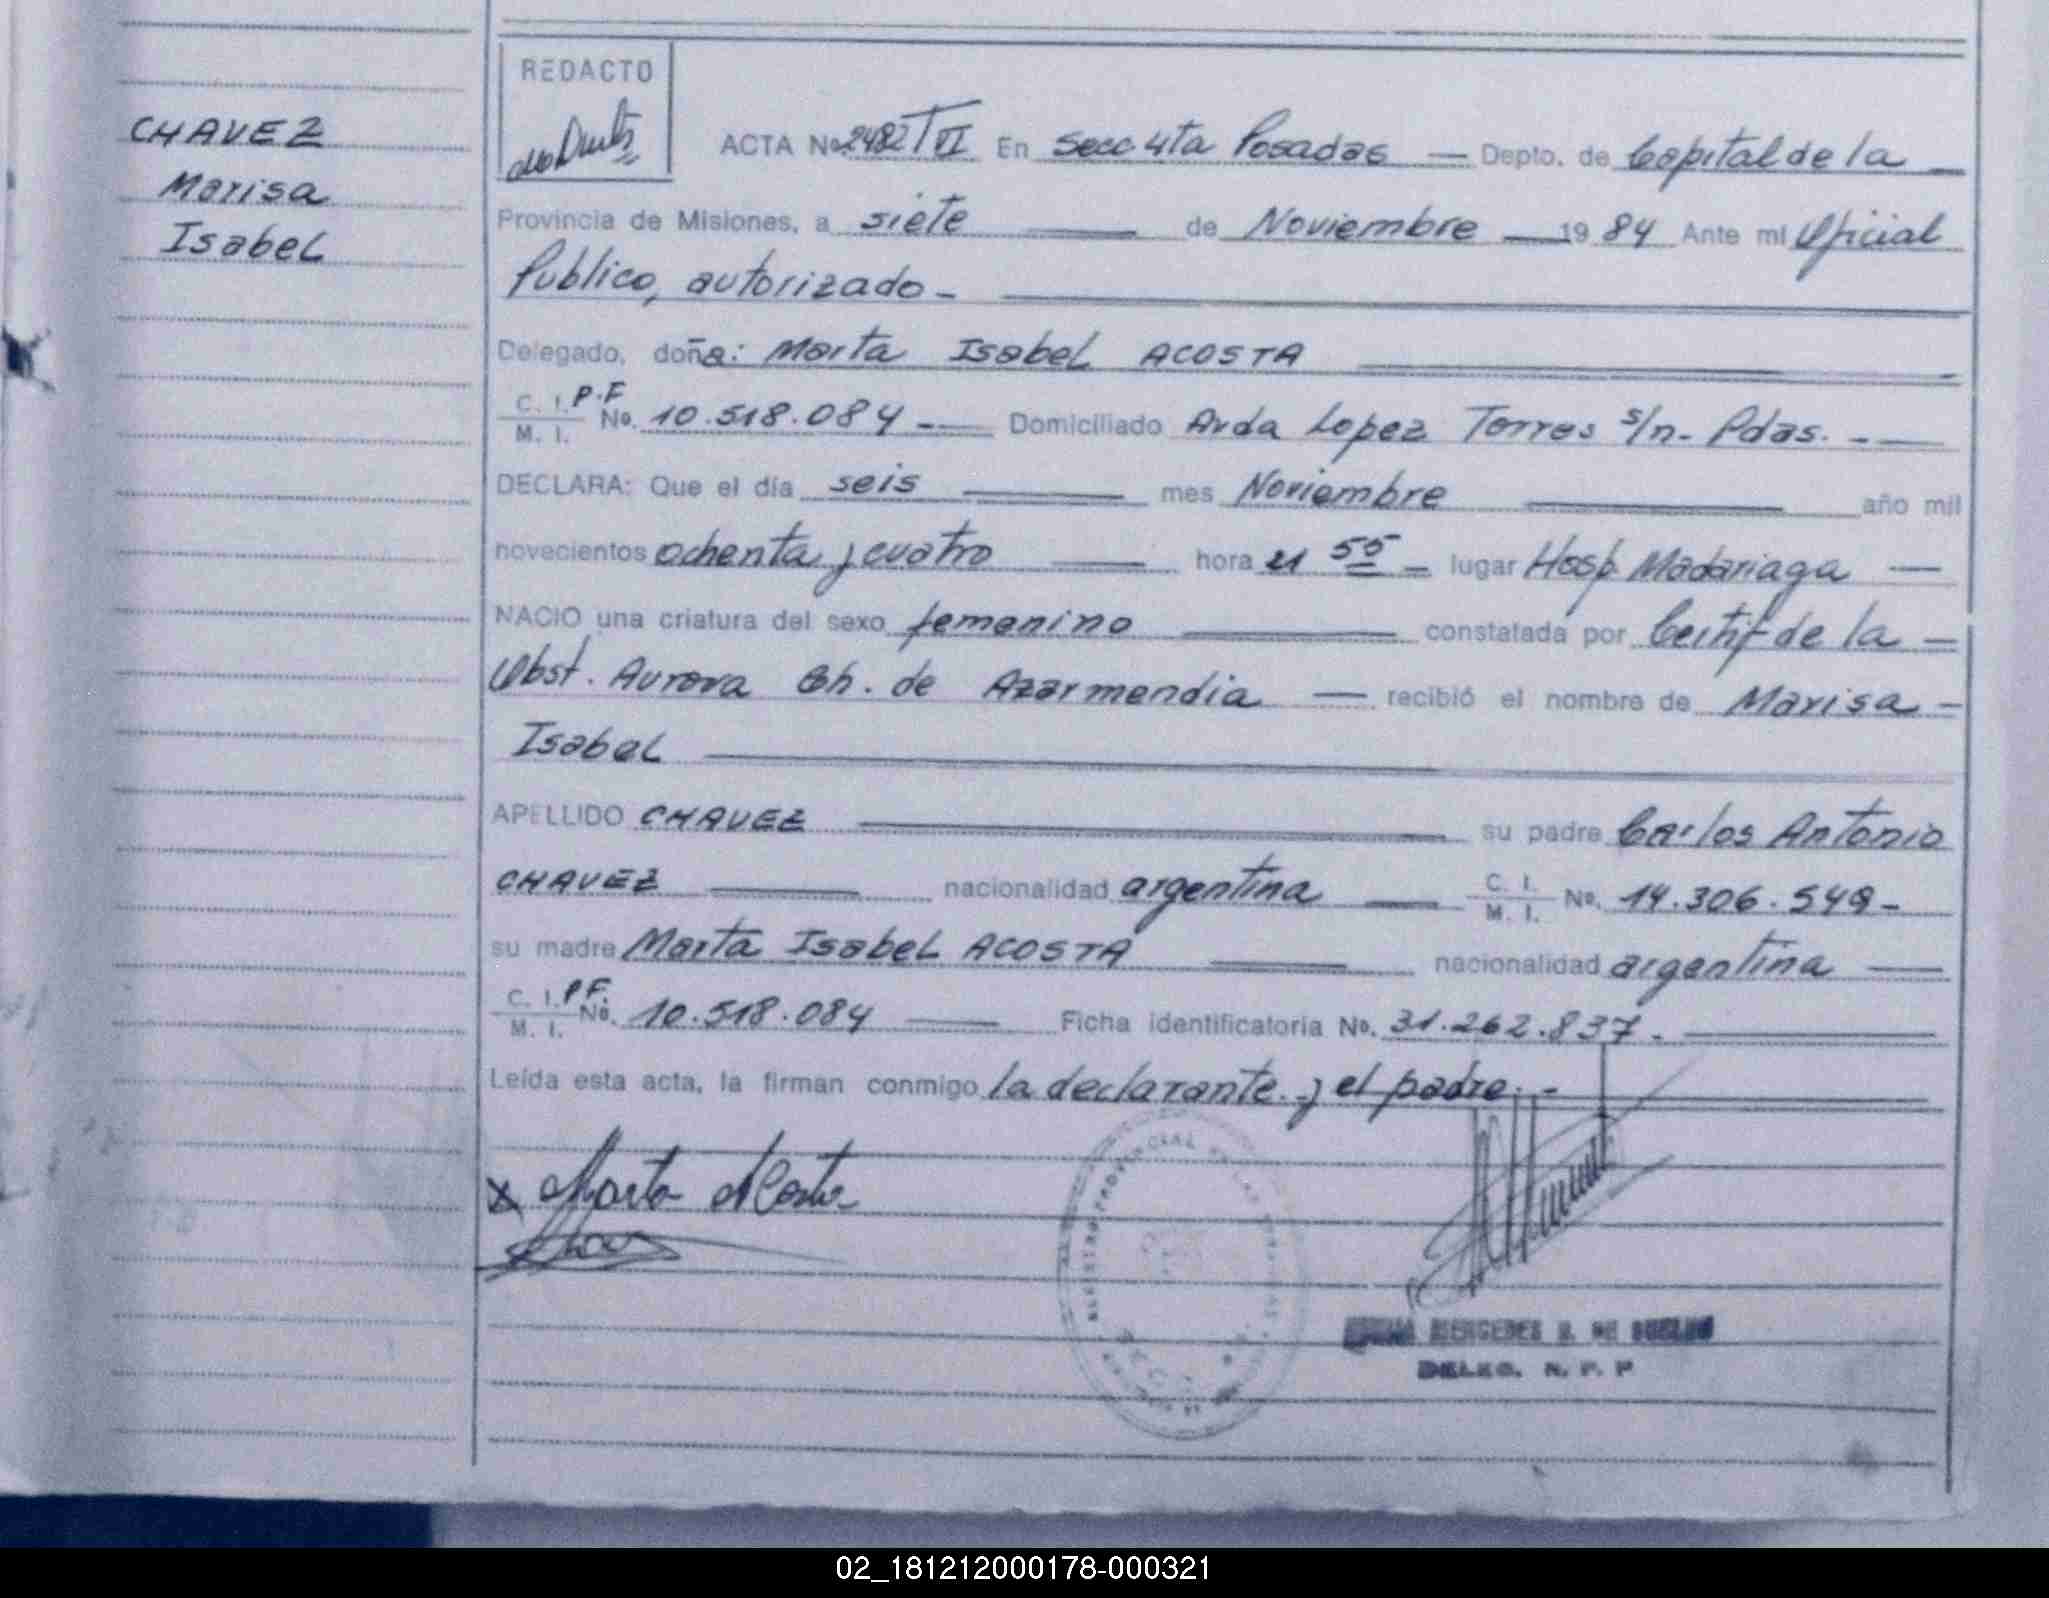 CHAVEZ
Marisa
Isabel
REDACTO
ACTA No. 2482 T VI En Secc 4ta Posadas — Depto. de Capital de la
Provincia de Misiones, a siete de Noviembre 19 84 Ante mi Oficial
Publico, autorizado -
Delegado, doña: Marta Isabel ACOSTA
C. I. P.F
M. I. No. 10.518.084 Domiciliado Avda Lopez Torres s/n- Pdas. -
DECLARA: Que el día seis mes Noviembre año mil
novecientos ochenta y cuatro hora 21 55 lugar Hosp. Madariaga
NACIO una criatura del sexo femenino constatada por Certif de la
Obst. Aurora Ch. de Azarmendia recibió el nombre de Marisa -
Isabel
APELLIDO CHAVEZ su padre Carlos Antonio
CHAVEZ nacionalidad argentina C. I. M. I. No. 14.306.549-
su madre Marta Isabel ACOSTA nacionalidad argentina
C. I. P F.
M. I. No. 10.518.084 Ficha identificatoria No. 31.262.837.-
Leída esta acta, la firman conmigo la declarante. y el padre. -
x Marta Acosta
MERCEDES
N. P. P
02_181212000178-000321